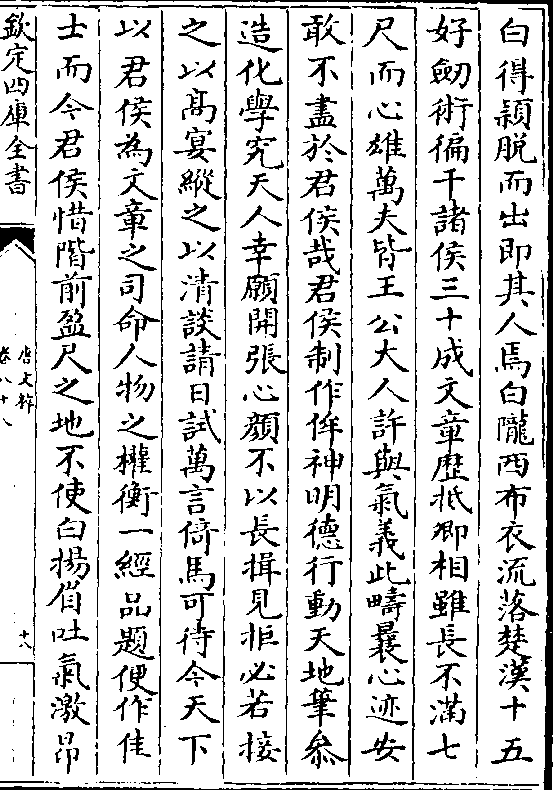 白得穎脫而出即其人焉白隴西布衣流落楚漢十五
好劒術徧干諸侯三十成文章歴抵卿相雖長不滿七
尺而心雄萬夫皆王公大人許與氣義此疇曩心迹安
敢不盡於君侯哉君侯制作侔神明德行動天地筆叅
造化學究天人幸願開張心顔不以長揖見拒必若接
之以髙宴縱之以清談請日試萬言倚馬可待今天下
以君侯為文章之司命人物之權衡一經品題便作佳
士而今君侯惜階前盈尺之地不使白揚眉吐氣激昂
欽定四庫全書
唐文粹
卷八十八
十八